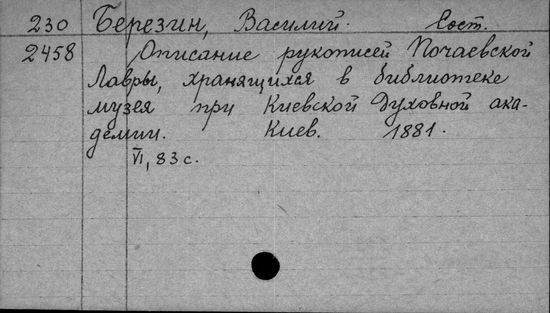 230 Березин, Василий. Сост.
2458 Описание рукописей Почаевской
Лавры, хранящихся в библиотеке
музея при Киевской Духовной ака-
демии. Киев. 1881.
VI, 83 с.